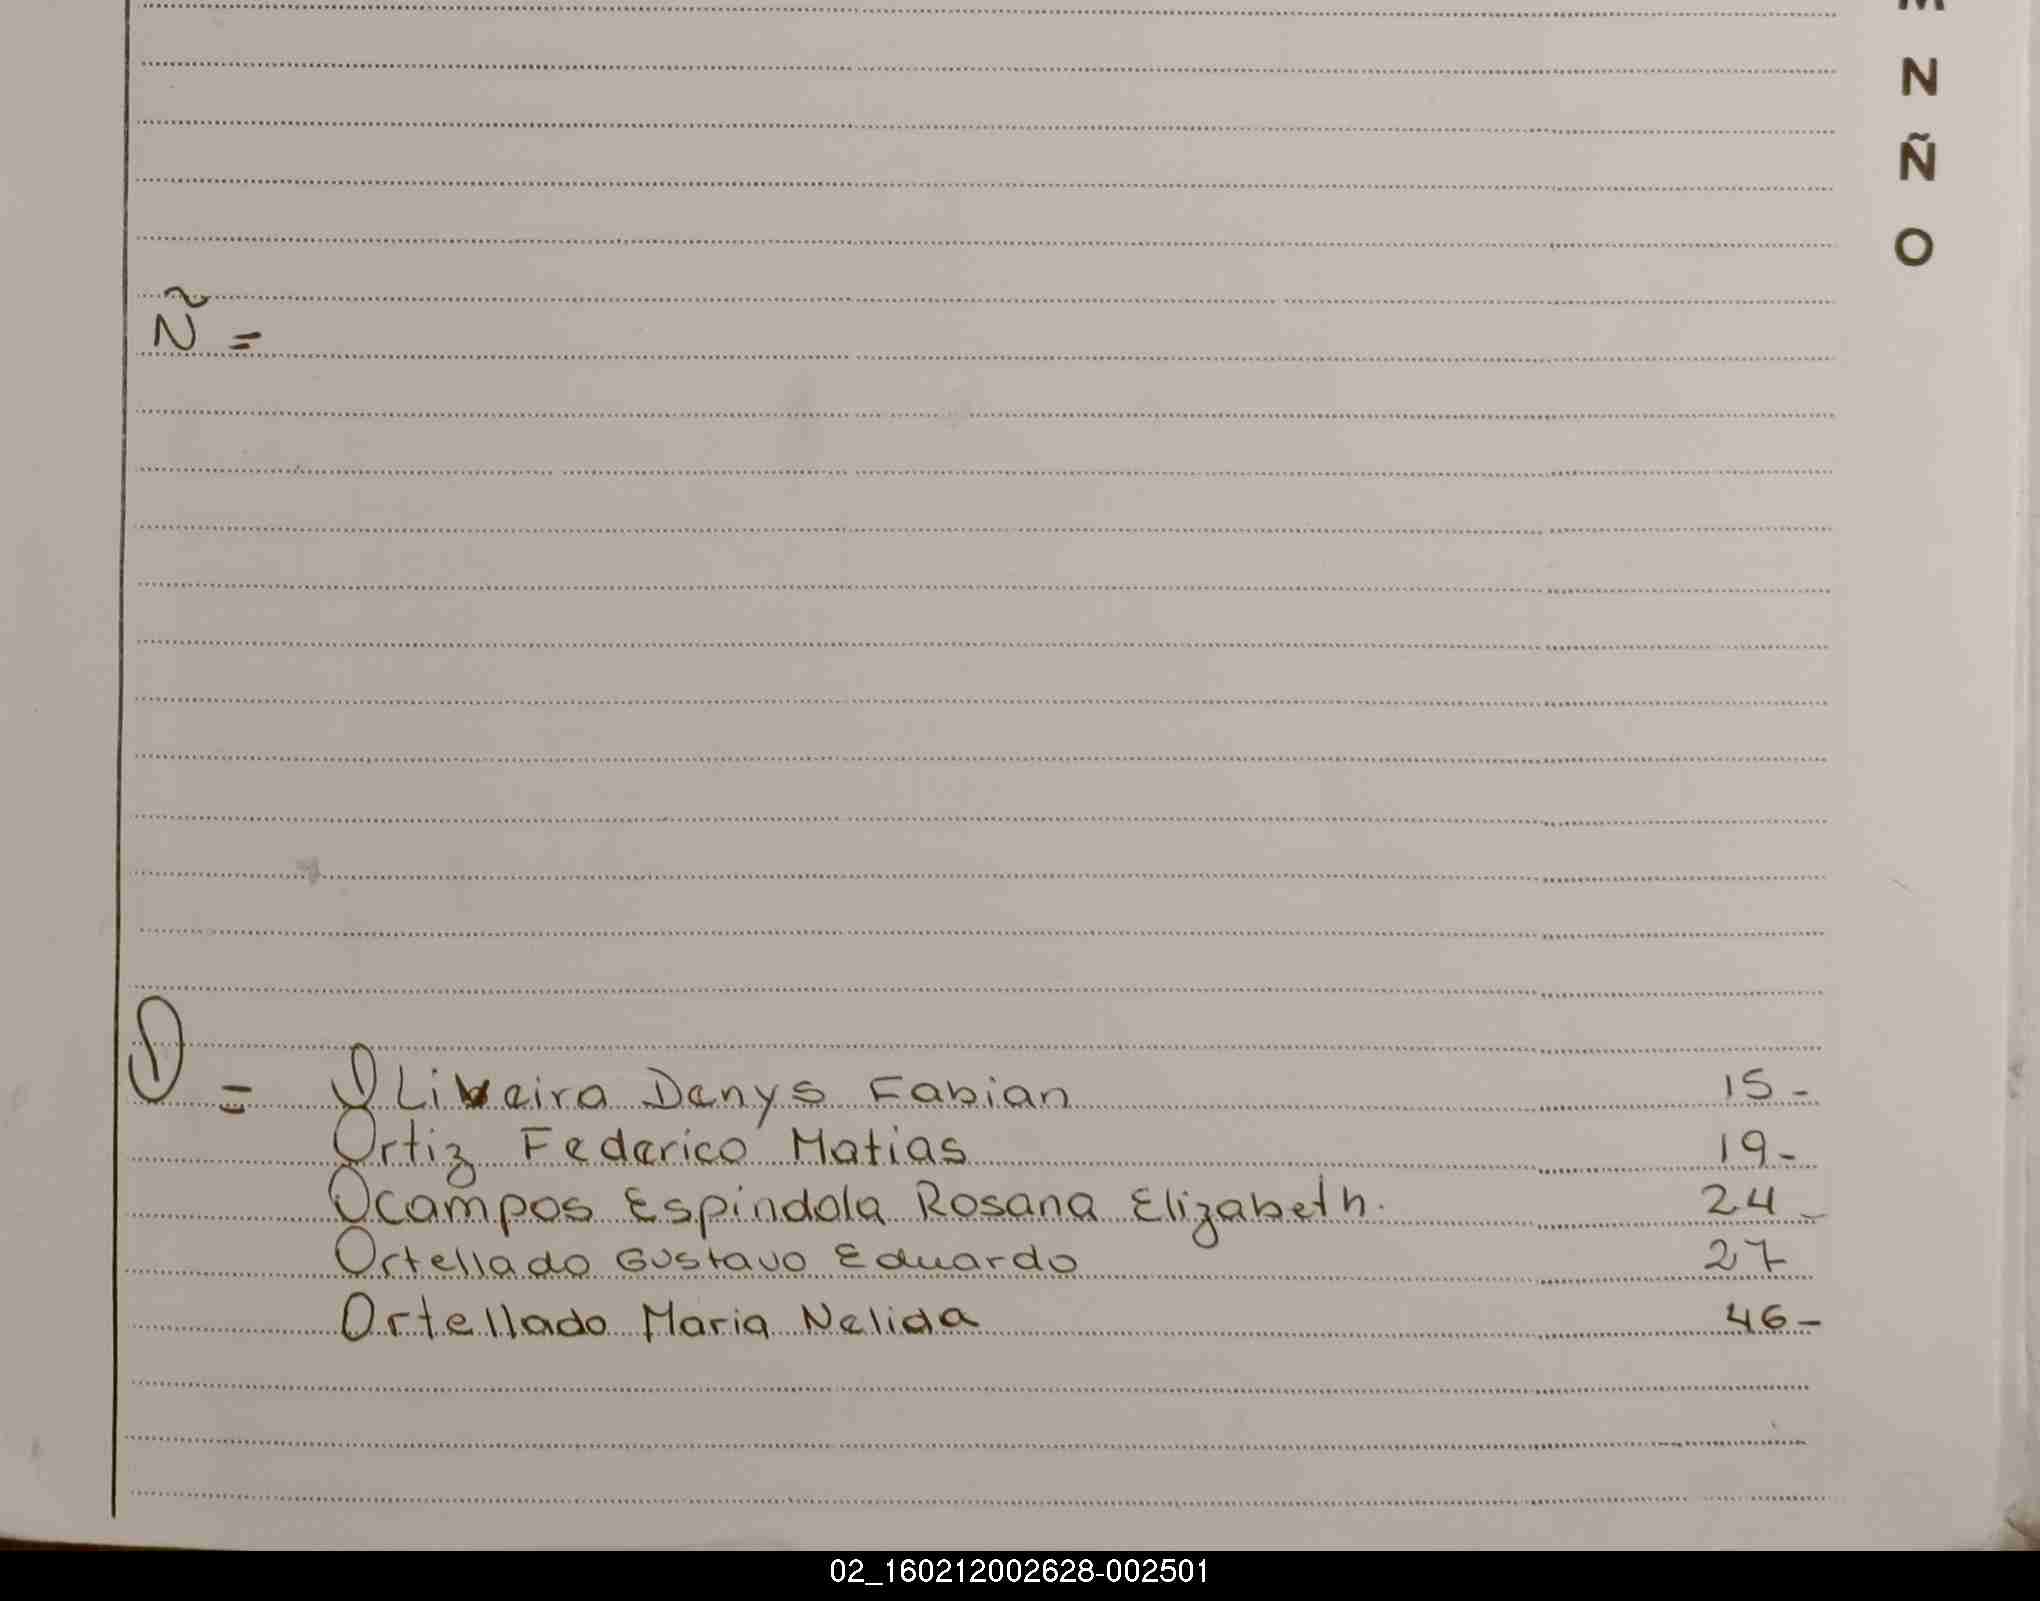 N
Ñ
O
Ñ =
O = OLiveira Danys Fabian 15 -
Ortiz Federico Matias 19 -
Ocampos Espindola Rosana Elizabeth. 24 -
Ortellado Gustavo Eduardo 27
Ortellado Maria Nelida 46 -
02_160212002628-002501